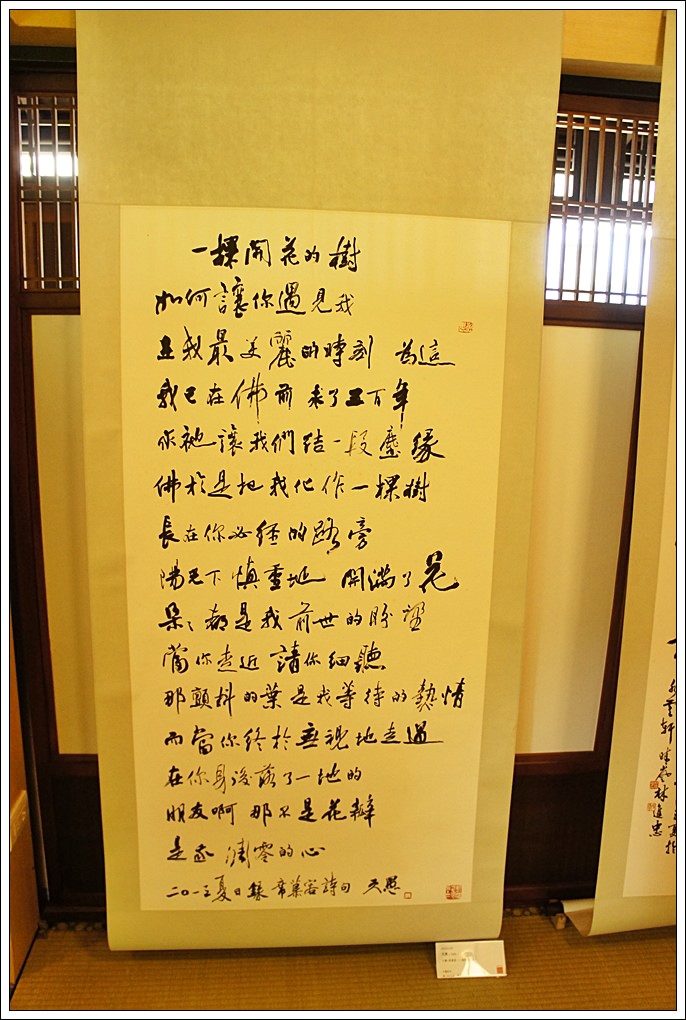 一棵開花的樹
如何讓你遇見我
在我最美麗的時刻 為這
我已在佛前 求了五百年
求祂讓我們結一段塵緣
佛於是把我化作一棵樹
長在你必經的路旁
陽光下慎重地 開滿了花
朵〻都是我前世的盼望
當你走近 請你細聽
那顫抖的葉是我等待的熱情
而當你終於無視地走過
在你身後落了一地的
朋友啊 那不是花瓣
是我凋零的心
二〇一三夏日錄 席慕蓉詩句
軒 林進忠